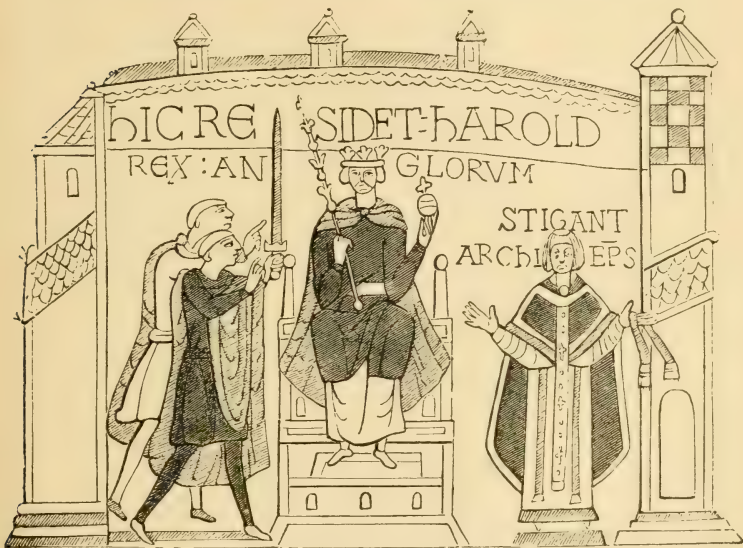 hIC RE SIDET:hAROLD
REX:AN GLORVM
STIGANT
ARChI EP̄S